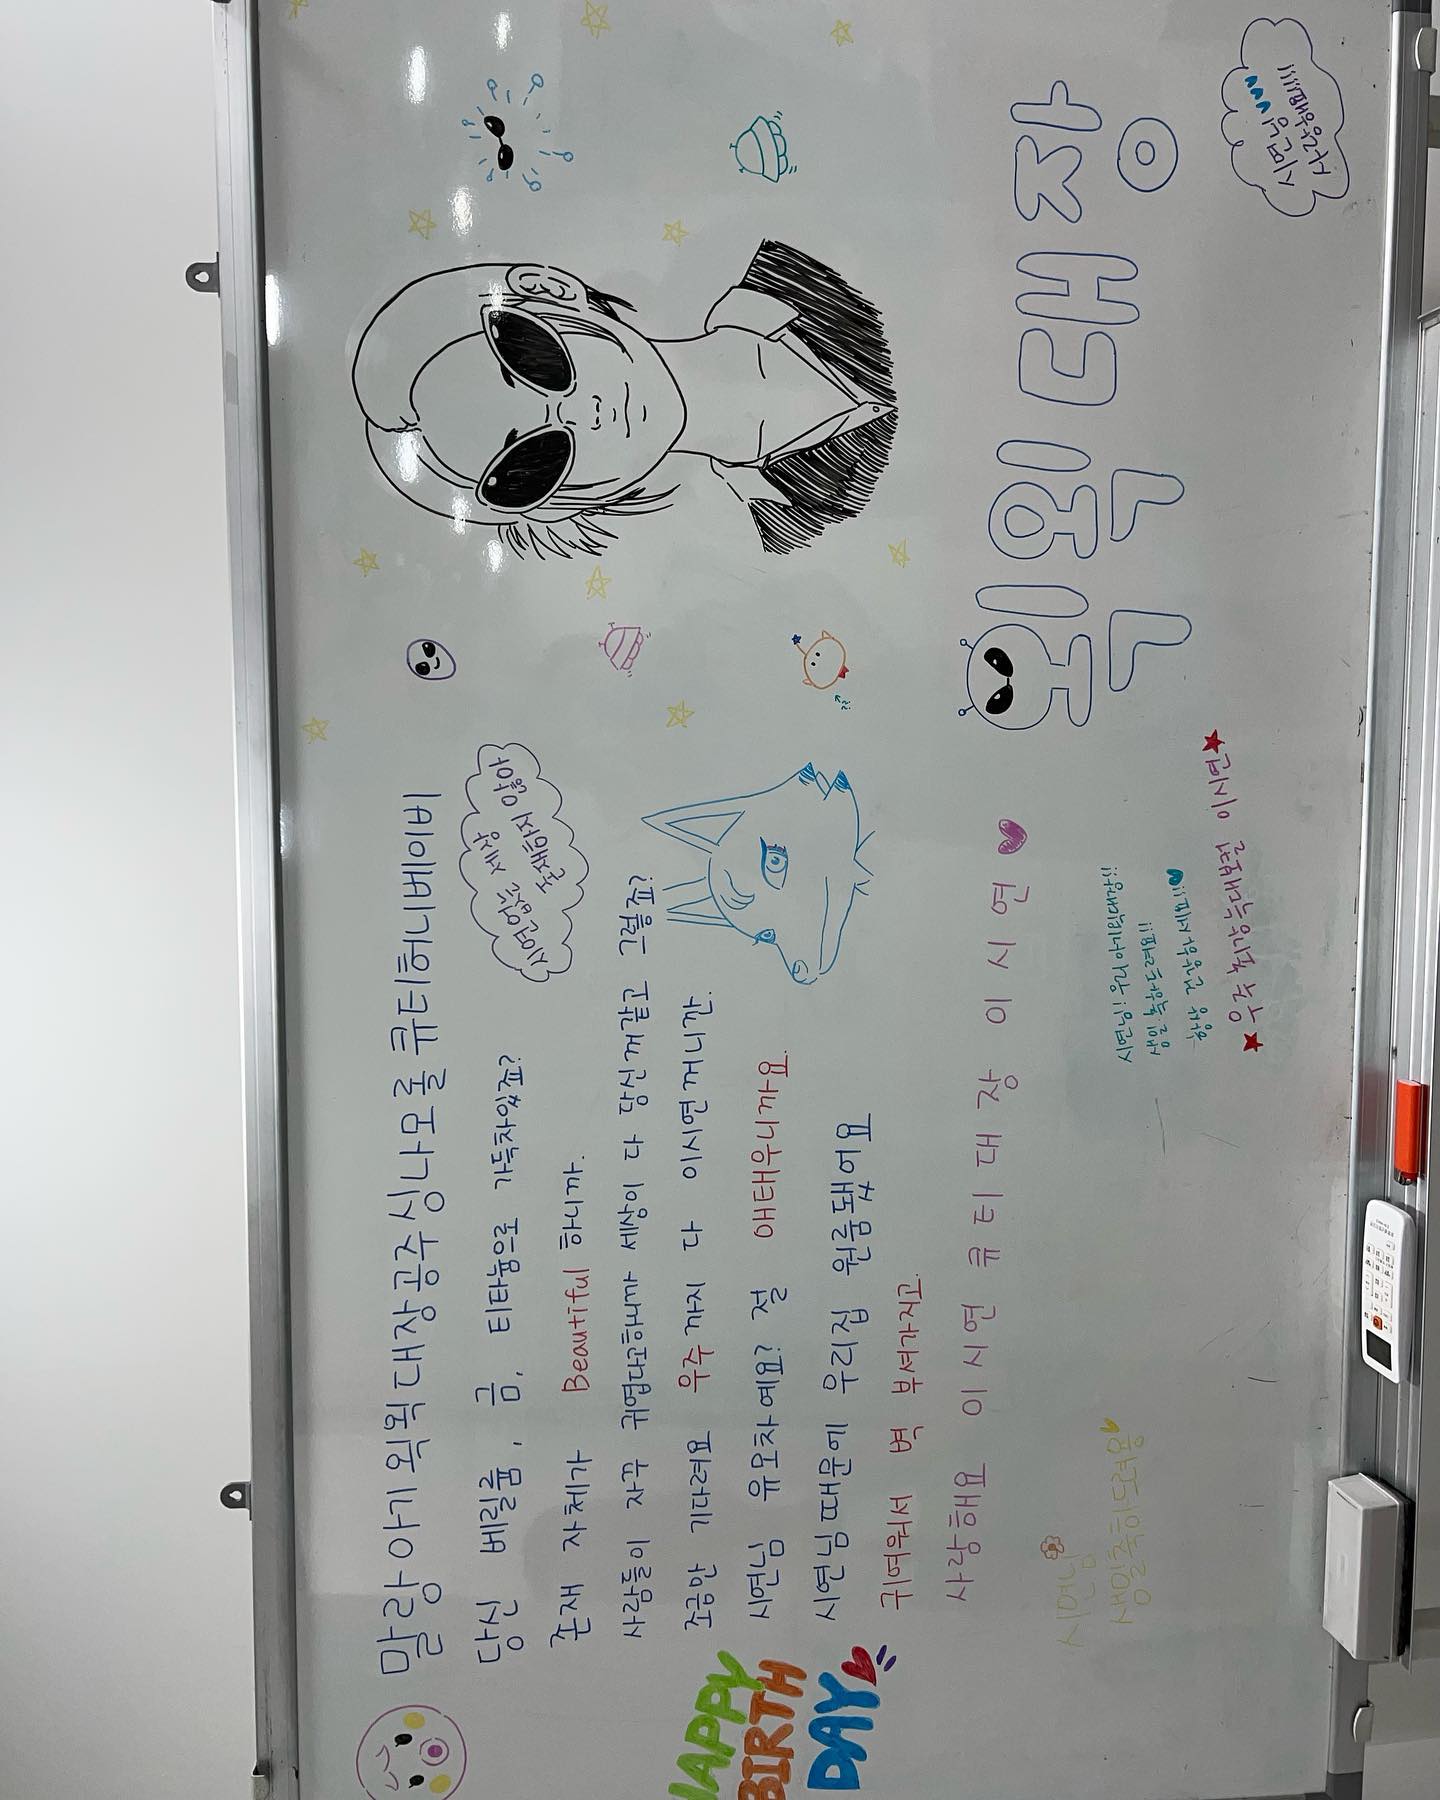 말랑아기외왹대장공주싱나모롤큐티허니베이비
당신 베릴륨, 금, 티타늄으로 가득차있죠?
존재 자체가 Beautiful 하니까.
사람들이 자꾸 귀엽다고하니까 세상이 다 당신꺼같고 그렇죠?
조금만 기다려요 우주까지 다 이시연꺼니깐.
시연님 유모차예요? 절 애태우니까요.
시연님때문에 우리집 원룸됐어요
귀여워서 벽 부셔가지고.
사랑해요 이시연 큐티대장 이시연
시연님
생일축하드려용
HAPPY
BIRTH
DAY
시연없는 세상
존재하지 않아
외왹대장
★우주폭발대박
이시연★
시연님
사랑해요!!!!!